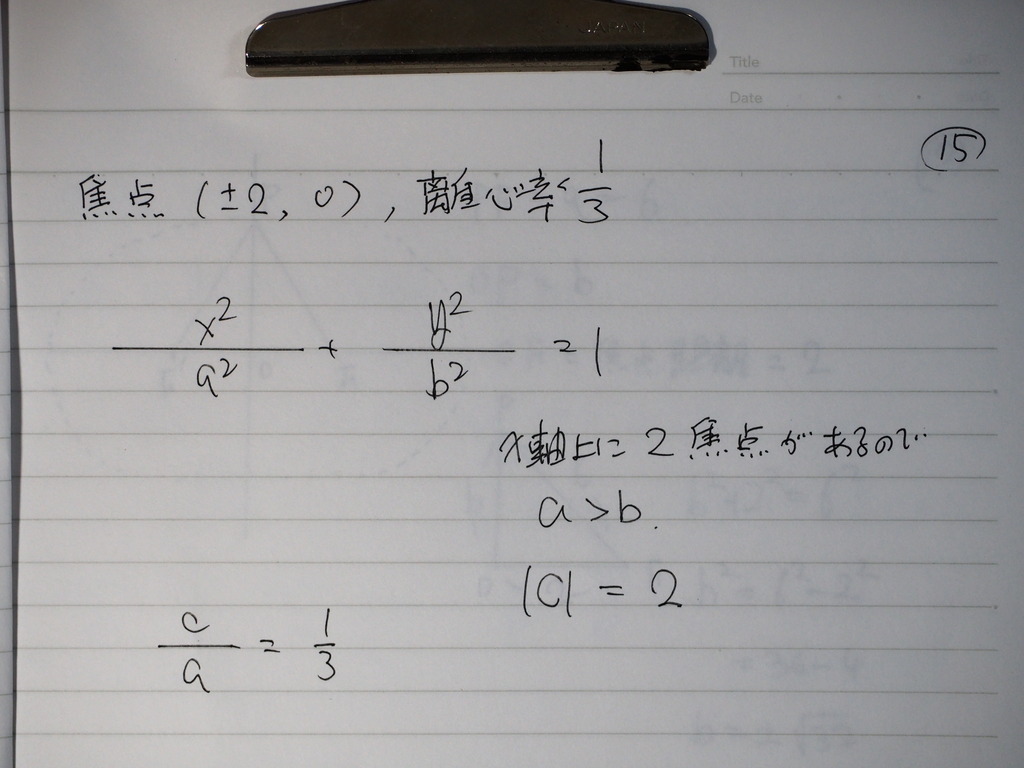 Title
Date
⑮
焦点 (±2, 0), 離心率 1/3
x²/a² + y²/b² = 1
x軸上に 2 焦点があるので
a > b.
|C| = 2
c/a = 1/3